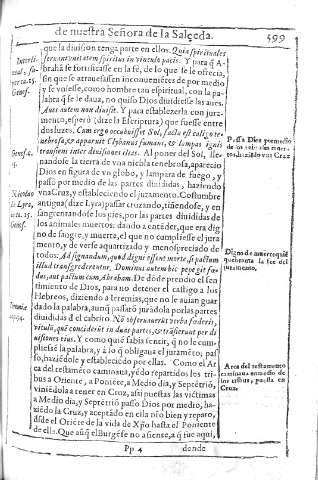 de nuestra Señora de la Salceda. 599
que la diuision tenga parte en ellos. Quia spirituales
seruant unitatem spiritus in vinculo pacis. Y para q̃ A-
brahã se fortificasse en la fè, de lo que se le ofrecia,
sin que se atrauessassen inconuenientes de por medio
y se viniesse, como hombre tan espiritual, con la pa-
labra q̃ se le daua, no quiso Dios diuidiesse las aues.
Aues autem non diuisit. Y para establezerla con jura-
mento, esperó (dize la Escriptura) que fuesse entre
dos luzes. Cum ergo occubuisset Sol, facta est caligo te-
nebrosa, & apparuit Clybanus fumans, & lampas ignis
transiens inter diuisiones illas. Al poner del Sol, lle-
nandose la tierra de vna niebla tenebrosa, aparecio
Dios en figura de vn globo, y lampara de fuego, y
passò por medio de las partes diuididas, haziendo
vna Cruz, y estableciendo el juramento. Costumbre
antigua (dize Lyra) passar cruzando, tiñendose, y en
sangrentandose los pies, por las partes diuididas de
los animales muertos: dando a entẽder, que era dig
no de sangre, y muerte, el que no cumpliesse el jura
mento, y de verse aquartizado y menospreciado de
todos: Ad signandum, quod digni essent morte, si pactum
illud transgrederentur. Dominus autem hic pepegit foe-
dus, aut pactum cum Abraham. De dõde prendio el sen
timiento de Dios, para no detener el castigo a los
Hebreos, diziendo a Ieremias, que no le auian guar
dado la palabra, aunq̃ passarõ jurãdola por las partes
diuididas d̃l cabrito. Nõ obseruauerũt verba foederis,
vitulũ, quẽ conciderũt in duas partes, & trãsierunt per di
uisiones eius. Y como quiẽ sabia sentir, q̃ no le cum-
pliesse la palabra, y à lo q̃ obligaua el juramẽto; pas
sò, haziẽdole y estableciẽdo por ellas. Como el Ar
ca del testamẽto caminaua, yẽdo repartidos los tri-
bus a Oriente, a Poniẽte, a Medio dia, y Septẽtriõ,
viniẽdola a tener en Cruz, asi puestas las victimas
a Medio dia, y Septẽtriõ passo Dios por medio, ha-
ziẽdo la Cruz, y aceptãdo en ella nr̃o bien y reparo,
dsde el Oriẽte de la vida de Xp̃o hasta el Poniente
de ella. Que aũq̃ el Burgẽse no a siense, a q̃ fue aqui,
Pp 4 donde
Genes.
Nicolao
de Lyra,
Genes.
Passa Dios por medio
Digno de muerte quiẽ
quebranta la fee del
juramento.
Arca del testamento
caminaua en medio de
los tribus, puesta en
Cruz.